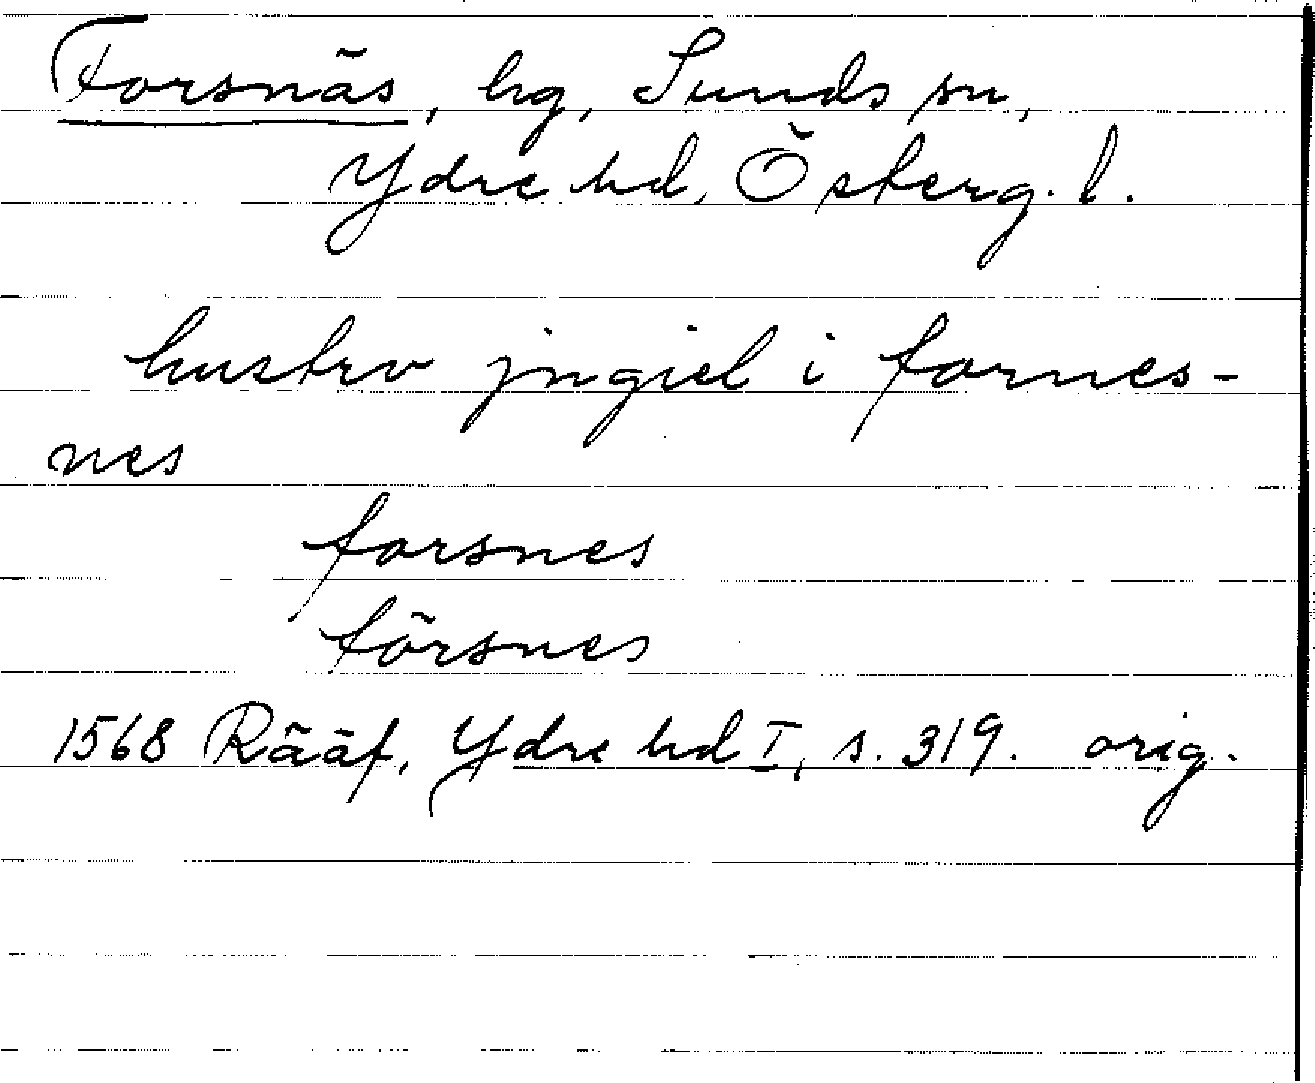 Forsnäs, hg, Sunds sn,
Ydre hd, Österg. l.
hustrv jngiel i fornes-
nes
forsnes
försnes
1568 Rääf, Ydre hd I, s. 319. orig.